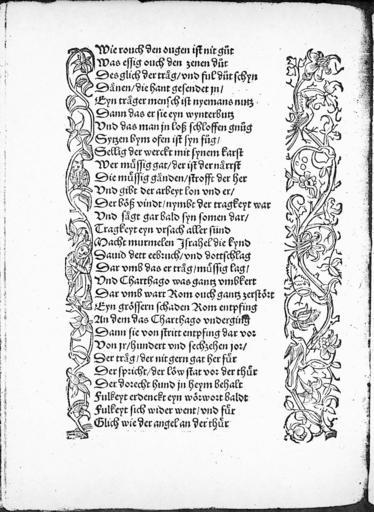 Wie rouch den ougen ist nit gůt
Was essig ouch den zenen důt
Des glich der träg/ vnd ful důt schyn
Dånen/ die hant gesendet jn/
Eyn träger mensch ist nyemans nutz
Dann das er sie eyn wynterbutz
Vnd das man jn loß schloffen gnůg
Sytzen bym ofen ist syn fůg/
Sellig der werckt mit synem karst
Wer můssig gat/ der ist der närrst
Die můssig gånden/ strofft der her
Vnd gibt der arbeyt lon vnd er/
Der böß vindt/ nymbt der tragkeyt war
Vnd sågt gar bald syn somen dar/
Tragkeyt eyn vrsach aller sünd
Macht murmelen Jsrahel die kynd
Dauid dett eebruch/ vnd dottschlag
Dar vmb das er träg/ müssig lag/
Vnd Charthago was gantz vmbkert
Dar vmb wart Rom ouch gantz zerstört
Eyn grössern schaden Rom entpfing
An dem das Charthago vnderging
Dann sie von stritt entpfing dar vor
Von jr/ hundert vnd sechzehen jor/
Der träg/ der nit gern gat her für
Der spricht/ der löw stat vor der thür
Der dorecht hund jn heym behalt
Fulkeyt erdenckt eyn wörwort baldt
Fulkeyt sich wider went/ vnd für
Glich wie der angel an der thür